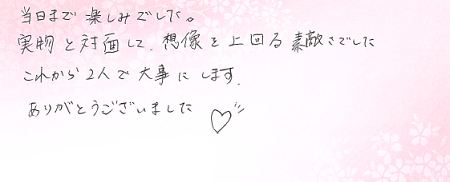 当日まで楽しみでした。
実物と対面して、想像を上回る素敵さでした
これから2人で大事にします.
ありがとうございました